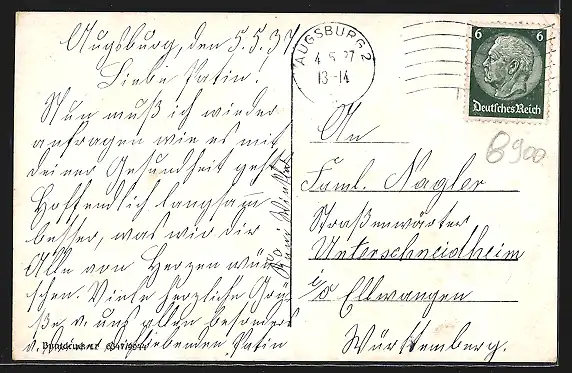 Augsburg, den 5.5.37
Liebe Patin.
Nun muß ich wieder
anfragen wie es mit
deiner Gesundheit geht
Hoffendlich langsam
besser, was wir dir
Alle von Herzen wün-
schen. Viele herzliche Grü-
ße v. uns allen besonders
liebenden Patin
AUGSBURG 2
13-14
6 6
Deutsches Reich
6900
An
Faml. Nagler
Straßenwärter
Unterschneidheim
i/o Ellwangen
Württemberg.